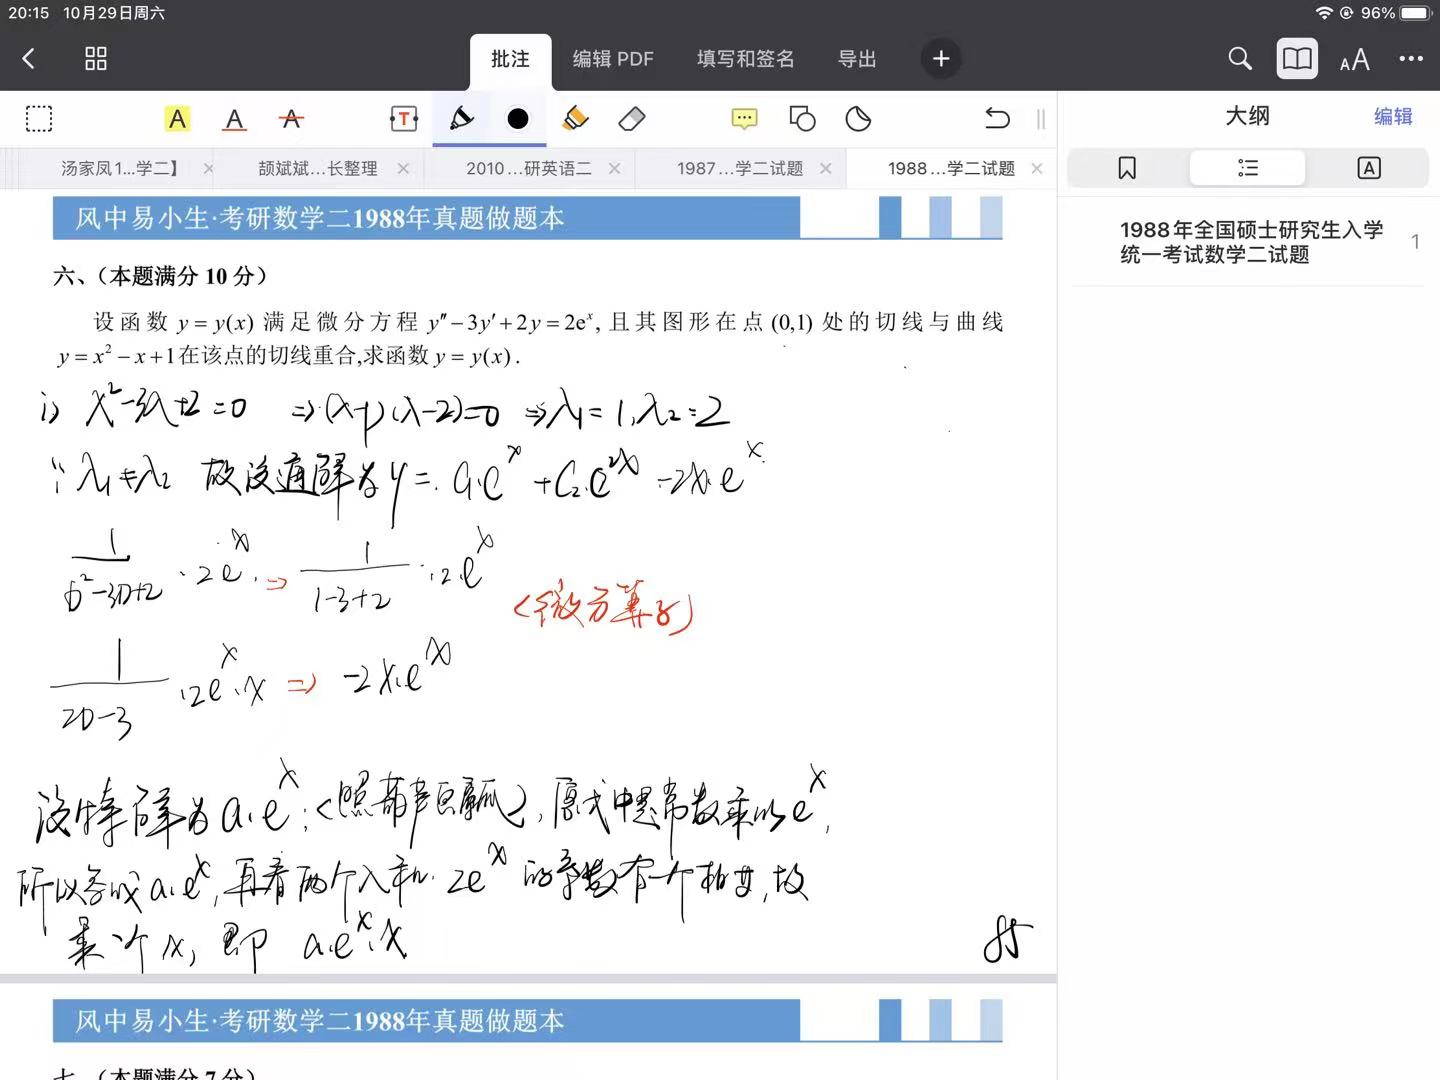 20:15 10月29日周六 96%
批注 编辑 PDF 填写和签名 导出
大纲 编辑
汤家凤1...学二】 颉斌斌...长整理 2010...研英语二 1987...学二试题 1988...学二试题
1988年全国硕士研究生入学统一考试数学二试题 1
风中易小生·考研数学二1988年真题做题本
六、（本题满分 10 分）
设函数 y = y(x) 满足微分方程 y″−3y′+2y=2eˣ, 且其图形在点 (0,1) 处的切线与曲线
y = x² − x +1在该点的切线重合,求函数 y = y(x) .
i) λ²-3λ+2=0 ⇒(λ-1)(λ-2)=0 ⇒λ₁=1,λ₂=2
∵λ₁≠λ₂ 故设通解为 y= C₁·eˣ+C₂·e²ˣ -2x·eˣ
1/(D²-3D+2) ·2eˣ ⇒ 1/(1-3+2) ·2·eˣ
(微分算子)
1/(2D-3) ·2eˣ·x ⇒ -2x·eˣ
设特解为a·eˣ: 原式中是常数乘以eˣ,
所以写成a·eˣ,再看两个λ和 2eˣ 的系数有一个相等,故
乘个x, 即 a·eˣ·x
风中易小生·考研数学二1988年真题做题本
七、（本题满分 7 分）